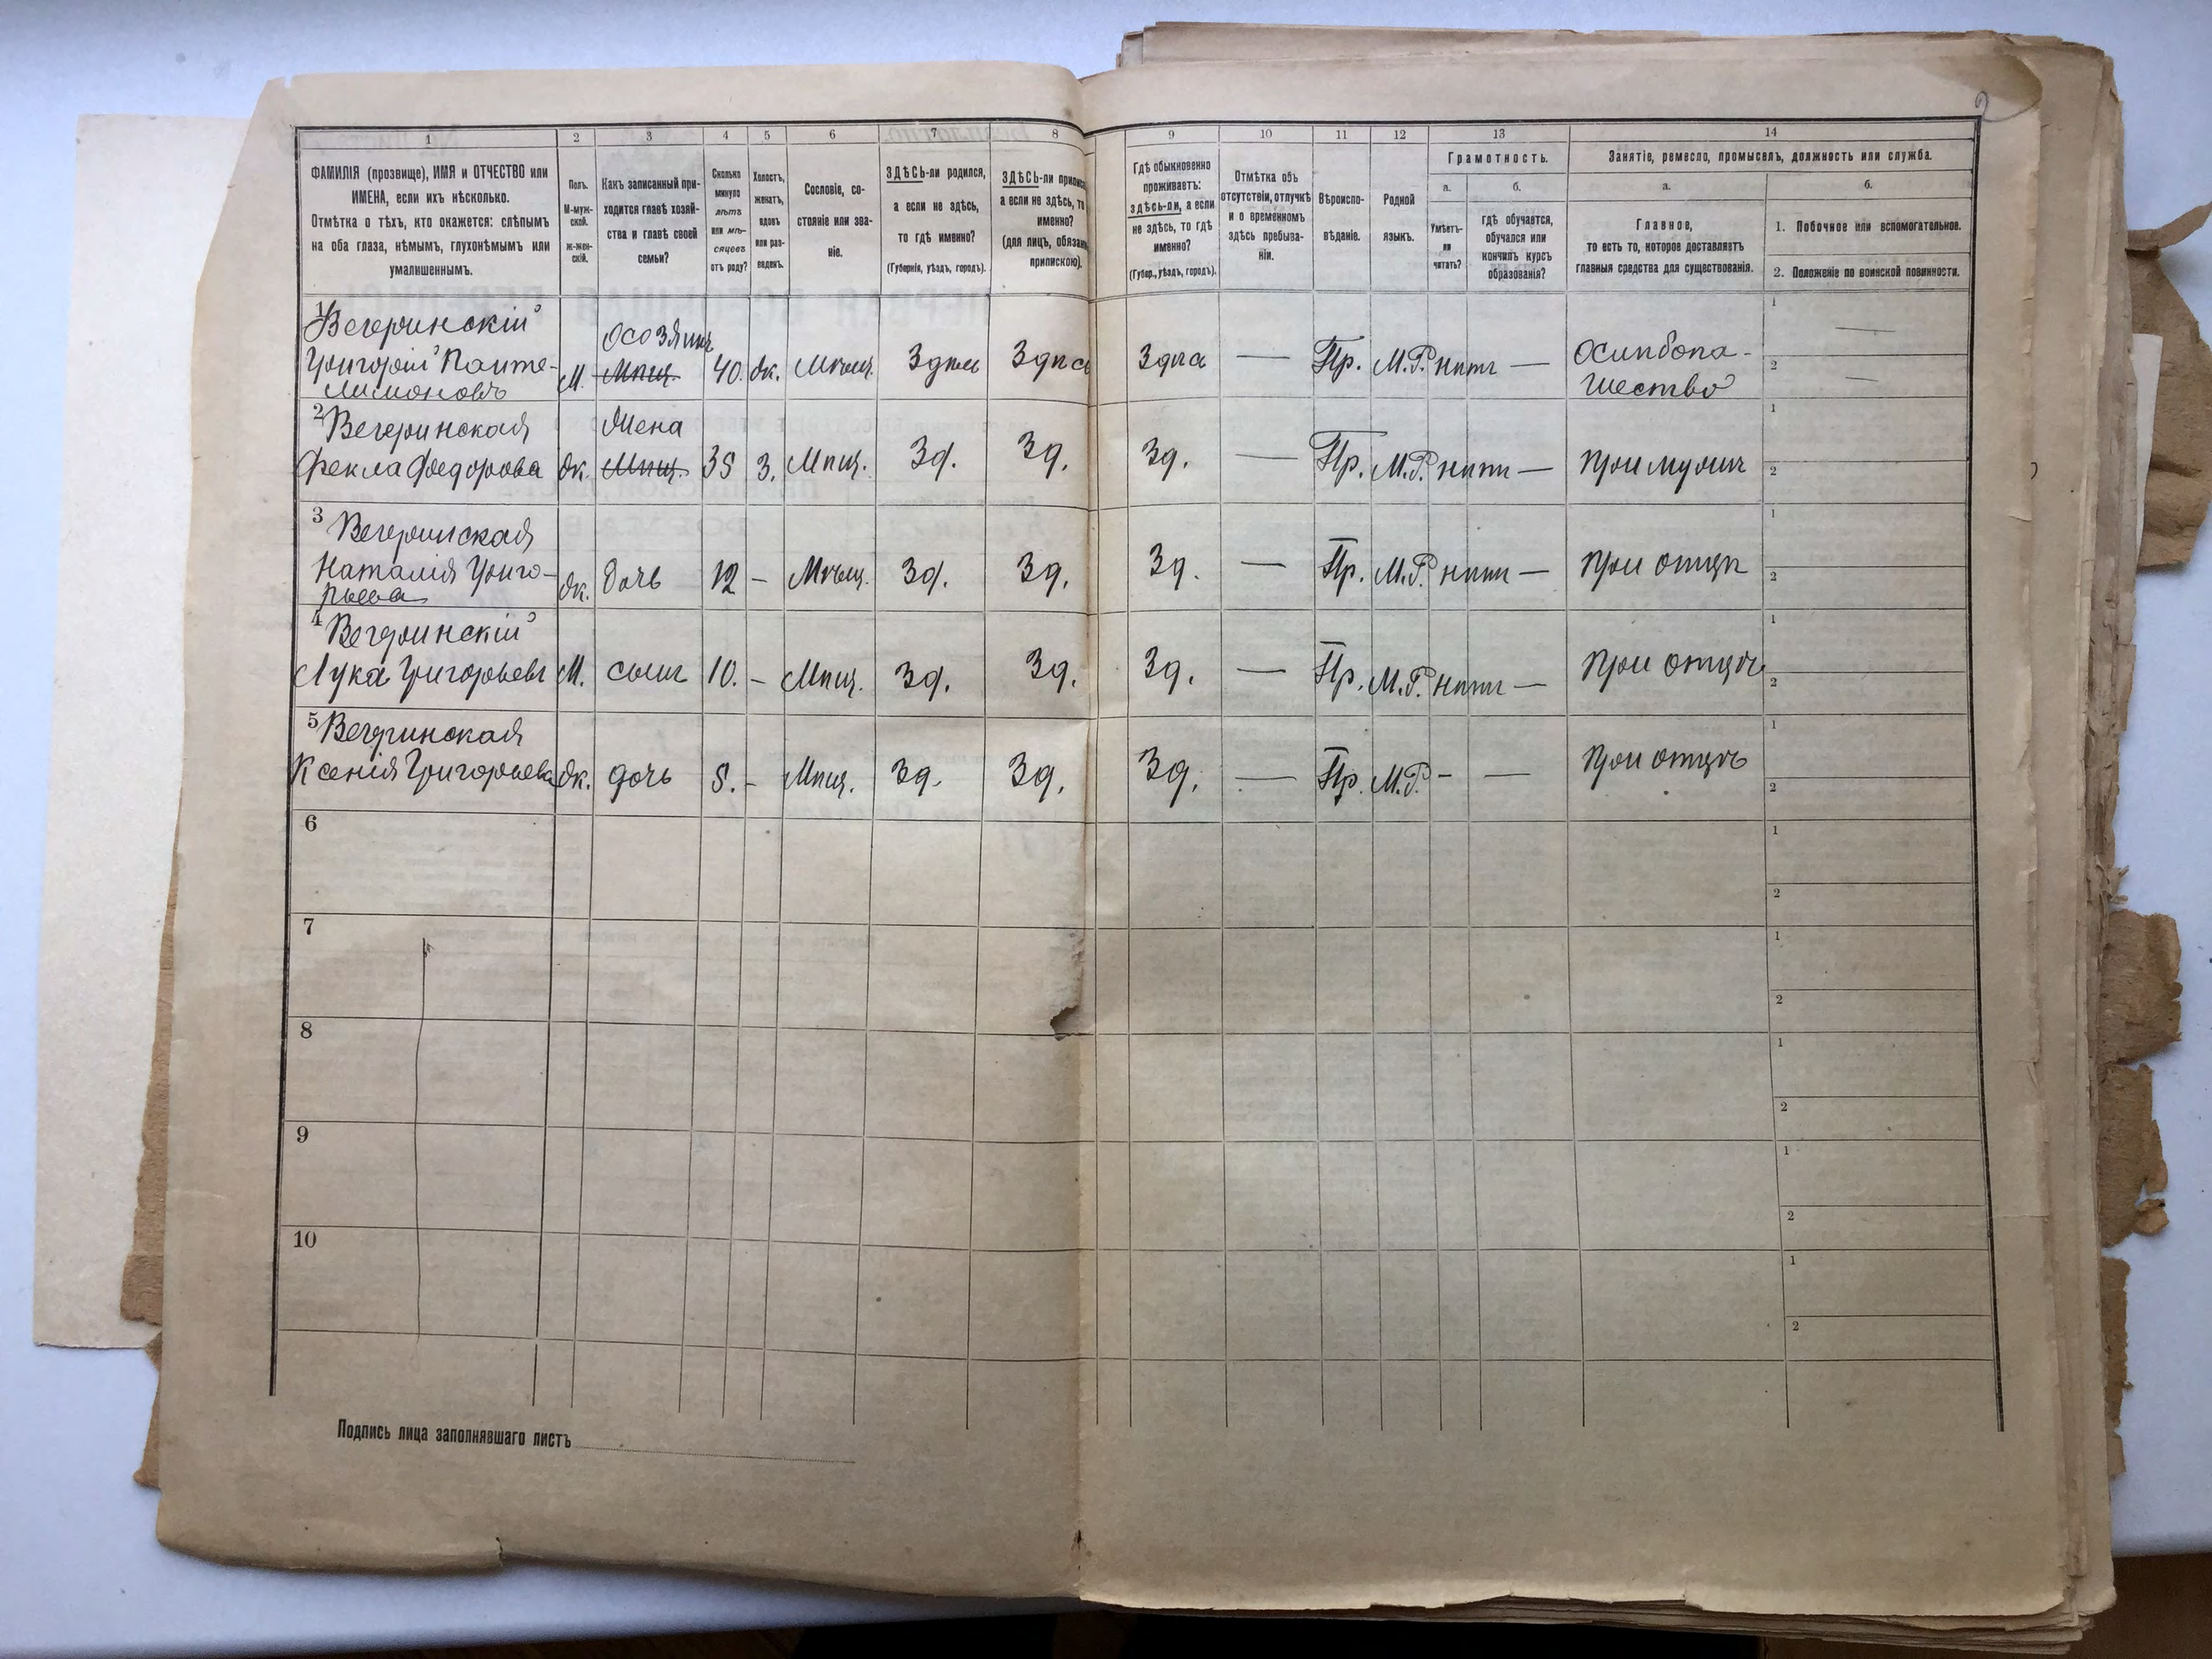 1 2 3 4 5 6 7 8 9 10 11 12 13 14
ФАМИЛІЯ (прозвище), ИМЯ и ОТЧЕСТВО или
ИМЕНА, если ихъ нѣсколько.
Отмѣтка о тѣхъ, кто окажется: слѣпымъ
на оба глаза, нѣмымъ, глухонѣмымъ или
умалишеннымъ.
Полъ.
М-муж-
ской.
Ж-жен-
скій.
Какъ записанный при-
ходится главѣ хозяй-
ства и главѣ своей
семьи?
Сколько
минуло
лѣтъ
или мѣ-
сяцевъ
отъ роду?
Холостъ,
женатъ,
вдовъ
или раз-
веденъ.
Сословіе, со-
стояніе или зва-
ніе.
ЗДѢСЬ-ли родился,
а если не здѣсь,
то гдѣ именно?
(Губернія, уѣздъ, городъ).
ЗДѢСЬ-ли
а если не здѣсь, то
именно?
(для лицъ,
припискою).
Гдѣ обыкновенно
проживаетъ:
здѣсь-ли, а если
не здѣсь, то гдѣ
именно?
(Губер., уѣздъ, городъ).
Отмѣтка объ
отсутствіи, отлучкѣ
и о временномъ
здѣсь пребыва-
ніи.
Вѣроиспо-
вѣданіе.
Родной
языкъ.
Грамотность.
а.
Умѣетъ-
ли
читать?
б.
гдѣ обучается,
обучался или
кончилъ курсъ
образованія?
Занятіе, ремесло, промыселъ, должность или служба.
а.
Главное,
то есть то, которое доставляетъ
главныя средства для существованія.
б.
1. Побочное или вспомогательное.
2. Положеніе по воинской повинности.
1 Вегеринскій
Григорій Панте-
лимоновъ
М. Мѣщ. 40. Ж. Мѣщ. Здѣсь Здѣсь Здѣсь — Пр. М.Р. нѣтъ —
1 —
2 —
2 Вегеринская
Фекла Федорова
Жена
Ж. Мѣщ. 35 З. Мѣщ. Зд. Зд. Зд. — Пр. М.Р. нѣтъ — при мужѣ
1
2
3 Вегеринская
Наталія Григо-
рьева
Ж. дочь 12 – Мѣщ. Зд. Зд. Зд. — Пр. М.Р. нѣтъ — при отцѣ
1
2
4 Вегеринскій
Лука Григорьевъ М. сынъ 10. – Мѣщ. Зд. Зд. Зд. — Пр. М.Р. нѣтъ — при отцѣ
1
2
5 Вегеринская
Ксенія Григорьева Ж. дочь – Мѣщ. Зд. Зд. Зд. — Пр. М.Р. – — при отцѣ
1
2
6
1
2
7
1
2
8
1
2
9
1
2
10
1
2
Подпись лица заполнявшаго листъ